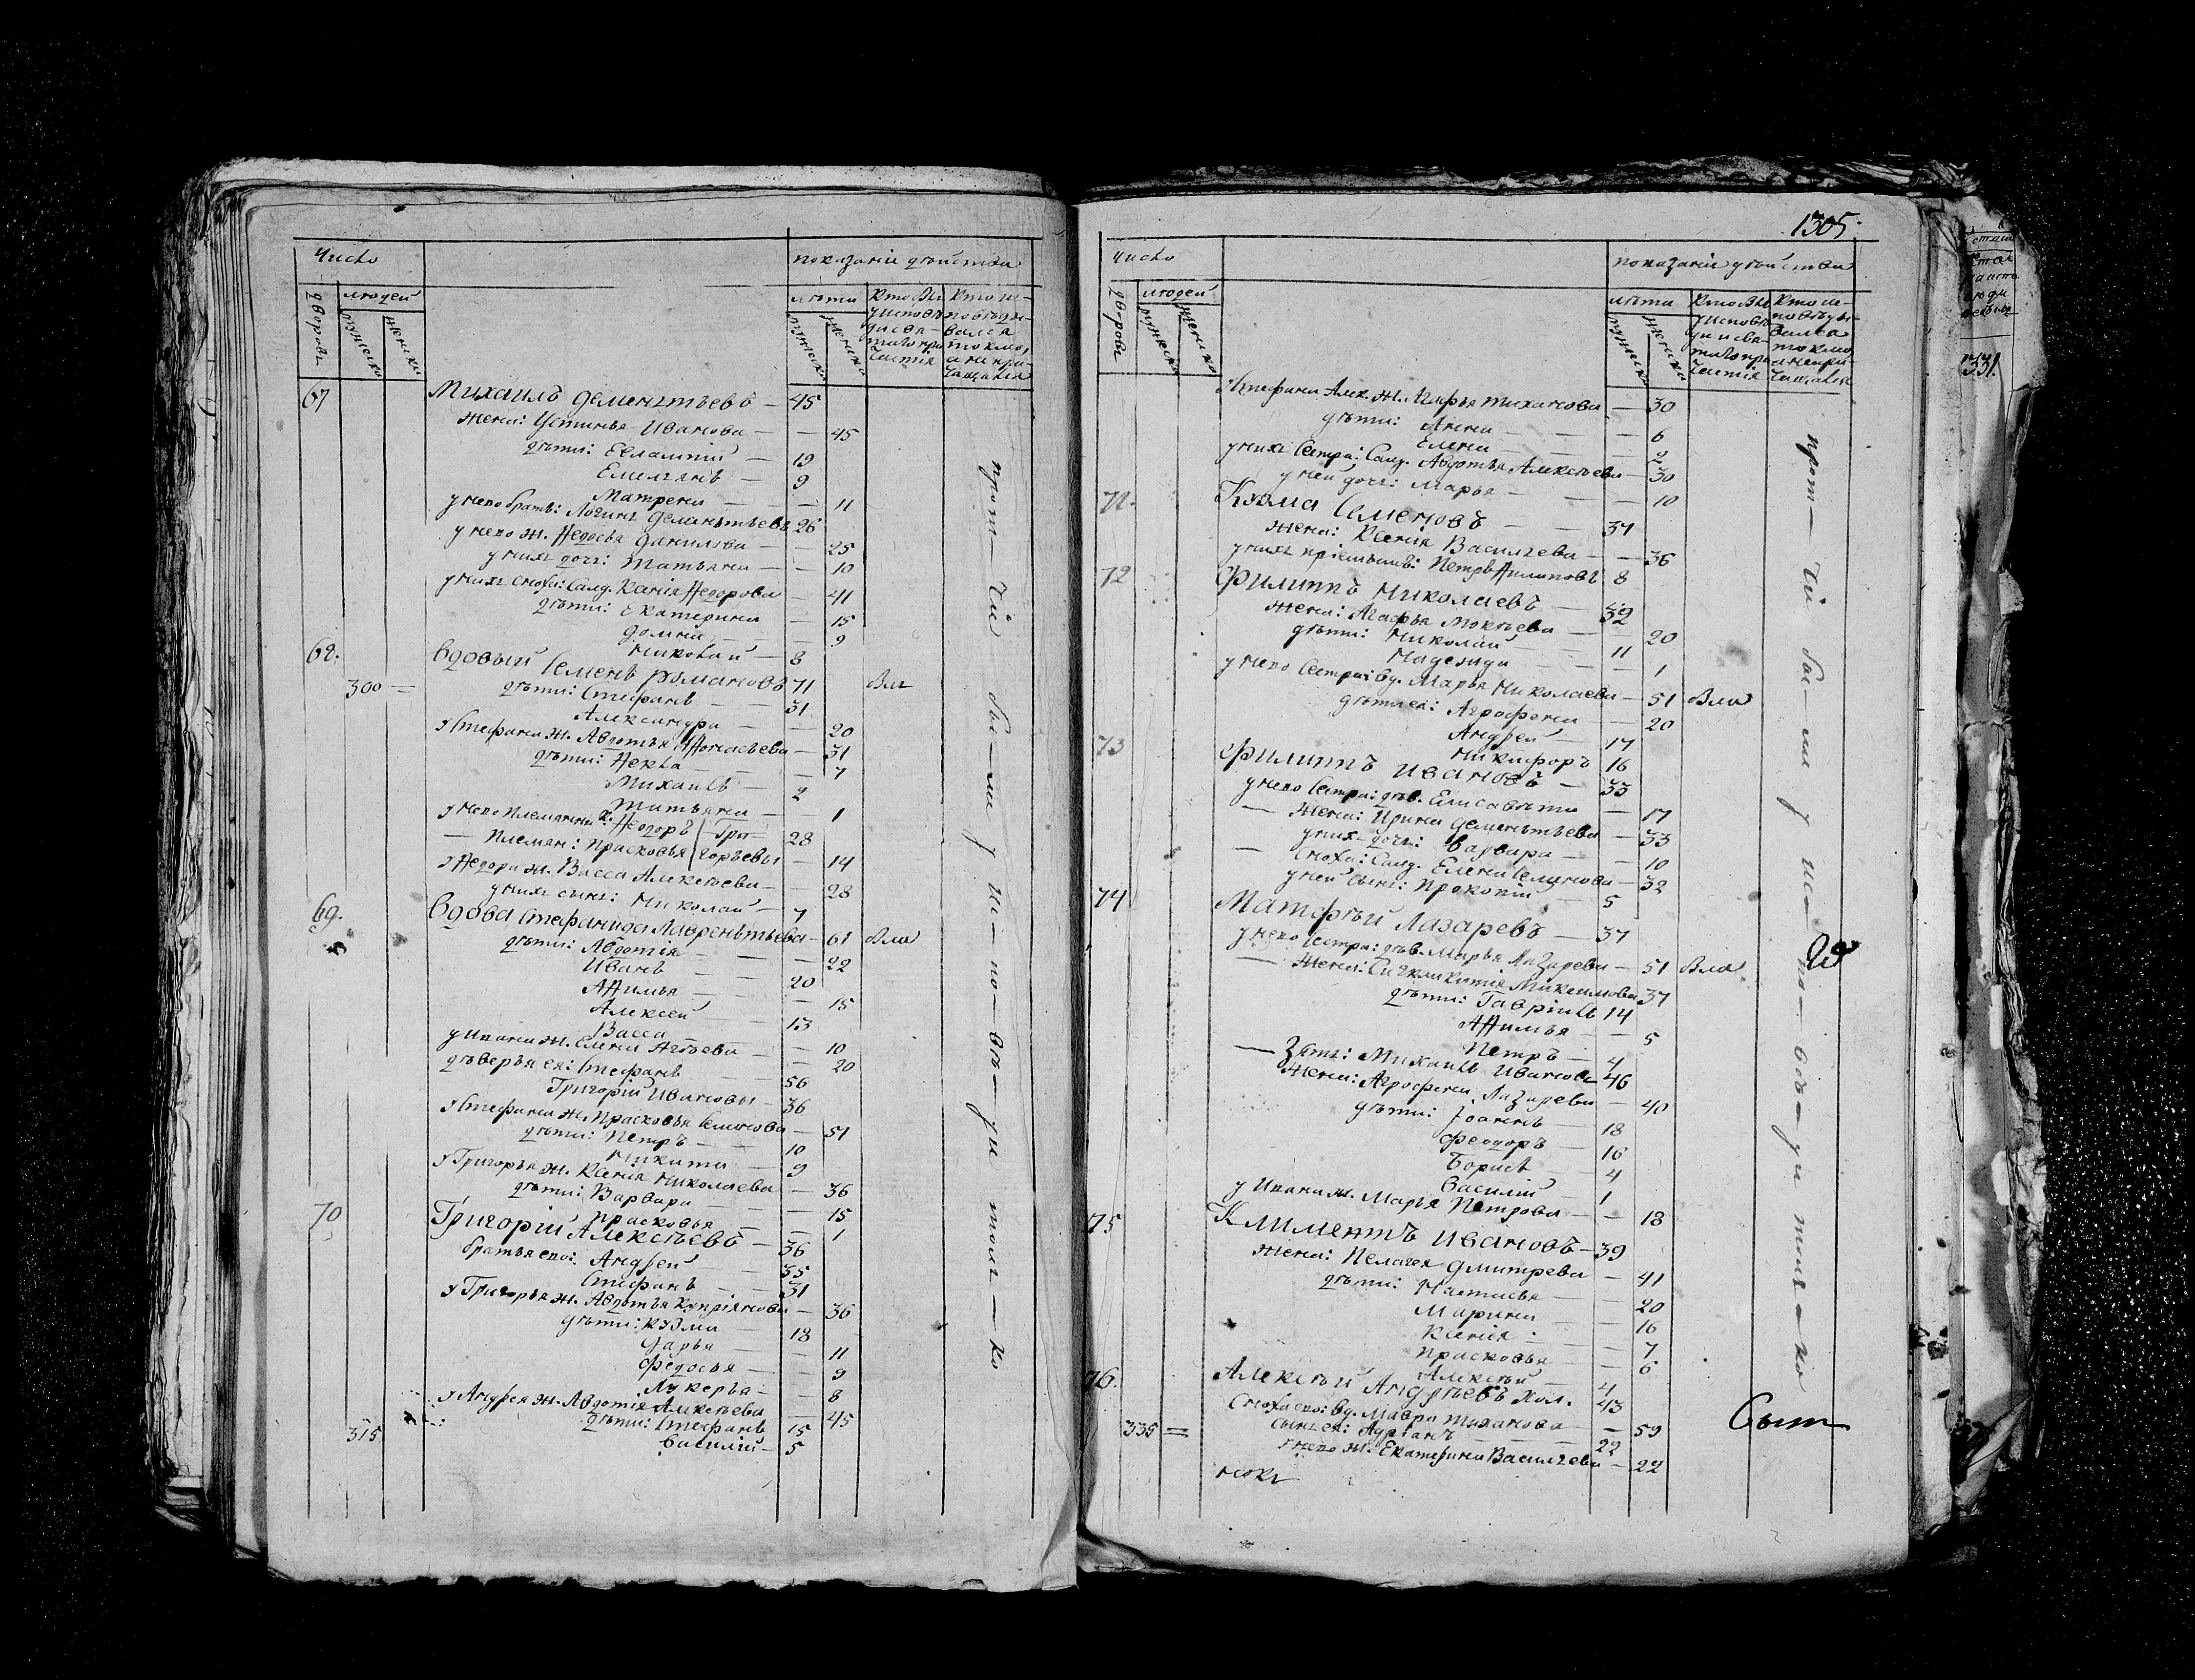 Число
показаніи дѣйства
дворовъ
людей
мужеска
женска
лѣта
мужеска
женска
кто былъ у исповѣди и святаго причастія
кто исповѣдывался токмо, а не причащался
67 Михаилъ Дементьевъ — 45
жена: Устинья Иванова — — 45
дѣти: Евлампій — 19
Емельянъ — 9
Матрена — — 11
у него братъ: Логинъ Дементьевъ 26
у него ж. Ѳедосья Данилова — — 25
у нихъ дочь: Татьяна — — 10
у нихъ сноха: Салд. Ксенія Ѳедорова — 41
дѣти: Екатерина — 15
Домна — — 9
Николай — 8
68. Вдовый Семенъ Романовъ 71 был
300 = дѣти: Стефанъ — — 31
Александра — — 20
у Стефана ж. Авдотья Аѳонасьева — 31
дѣти: Ѳекла — — — 7
Михаилъ — 2
Татьяна — — 1
у него племянни: Ѳедоръ Гри- 28
— племян: Прасковья горьевы — 14
у Ѳедора ж. Васса Алексѣева — — 28
у нихъ сынъ: Николай — 7
69. Вдова Стефанида Лаврентьева — 61 была
дѣти: Авдотія — — — 22
Иванъ — — 20
Аѳимья — — — 15
Алексей — — 13
Васса — — — 10
у Ивана ж. Елена — — 20
дѣверья ея: Стефанъ — — 56
Григорій Ивановы — 36
у Стефана ж. Прасковья Семенова — 51
дѣти: Петръ — — 10
Никита — 9
у Григорья ж. Ксенія Николаева — 36
дѣти: Варвара — — — 15
Прасковья — — 1
70 Григорій Алексѣевъ — 36
братья его: Андрей — — 35
Стефанъ — — 31
у Григорья ж. Авдотья Купріянова — 36
дѣти: Кузма — 18
Дарья — — 11
Федосья — — 9
Лукерья — — 8
у Андрея ж. Авдотія Алексѣева — 45
315 дѣти: Стефанъ 15
Василій — 5
прот — чіи бы — ли у ис — по — вѣ — ди толь — ко
1305.
Число
показаніи дѣйства
дворовъ
людей
мужеска
женска
лѣта
мужеска
женска
кто былъ у исповѣди и святаго причастія
кто исповѣдывался токмо, а не причащался
у Стефана Алек. ж. Агафья Тиханова — 30
дѣти: Анна — — — 6
Елена — — 2
у нихъ сестра: Салд. Авдотья Алексѣева — 30
у ней дочь: Марья — — — 10
71. Козма Семеновъ — — 37
жена: Ксенія Васильева — — 36
у нихъ пріемышъ: Петръ Филиповъ 8
72 Филиппъ Николаевъ — 32
жена: Агафья Мокѣева — — 20
дѣти: Николай — 11
Надежда — — 1
у него сестра: вд. Марья Николаева — 51 была
дѣти ея: Агрофена — 20
Андрей — 17
Никифоръ 16
73 Филиппъ Ивановъ — 33
у него сестра: дѣв. Елисавѣта — 17
— жена: Ирина Дементьева — 33
у нихъ дочь: Варвара — — 10
— сноха: Салд. Елена Семенова — 32
у ней сынъ: Прокопій — 5
74 Матфѣй Лазаревъ — 37
у него сестра: дѣв. Марья Лазарева — 51 была
— жена: Сигклитикія Максимова 37
дѣти: Гавріилъ 14
Аѳимья — — 5
Петръ — 4
— Зять: Михаилъ Ивановъ — 46
жена: Агрофена Лазарева — 40
дѣти: Іоаннъ — 18
Феодоръ — 16
Борисъ — 4
Василій — 1
у Ивана ж. Марья Петрова — — 18
75 Климентъ Ивановъ — 39
жена: Пелагея Дмитрева — 41
дѣти: Настасья — — 20
Марина — — 16
Ксенія — — 7
Прасковья — 6
Алексѣй — 4
76. Алексѣй Андрѣевъ хол. 43
сноха его: вд. Мавра Тиханова — — 59
335 = сынъ ея: — — 22
у него ж. Екатерина Васильева — 22
прот — чіи бы — ли у ис — по — вѣ — ди толь — ко